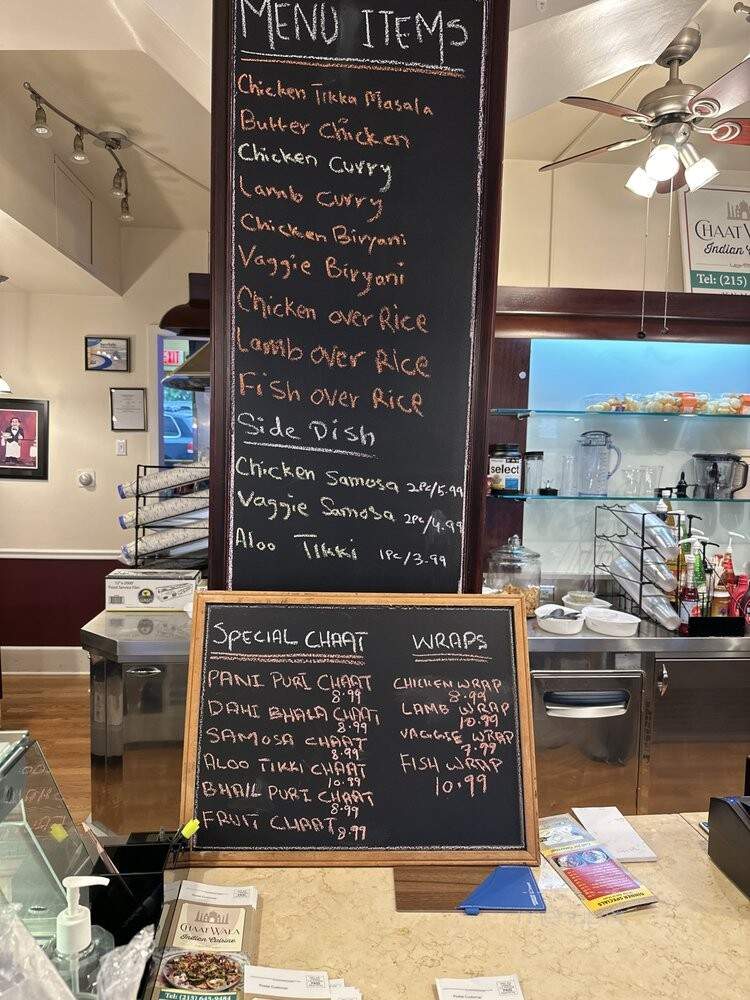 MENU ITEMS
Chicken Tikka Masala
Butter Chicken
Chicken Curry
Lamb Curry
Chicken Biryani
Vaggie Biryani
Chicken over Rice
Lamb over Rice
Fish over Rice
Side Dish
Chicken Samosa 2pc/5.99
Vaggie Samosa 2pc/4.99
Aloo Tikki 1pc/3.99
SPECIAL CHAAT
PANI PURI CHAAT
8.99
DAHI BHALA CHAAT
8.99
SAMOSA CHAAT
8.99
ALOO TIKKI CHAAT
10.99
BHAIL PURI CHAAT
8.99
FRUIT CHAAT 8.99
WRAPS
CHICKEN WRAP
8.99
LAMB WRAP
10.99
VAGGIE WRAP
7.99
FISH WRAP
10.99
CHAAT WA
Indian
Tel: (215)
EXIT
select
CHAAT WALA
Indian Cuisine
Tel: (215) 645-9484
Postal Customer
Postal Customer
Postal Customer
DINNER SPECIALS